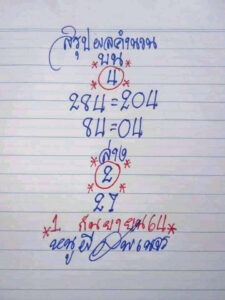 สรุปผลคำนวน
บน
*4*
284=204
84=04
ล่าง
*2*
27
*1 กันยายน64*
หนูผี